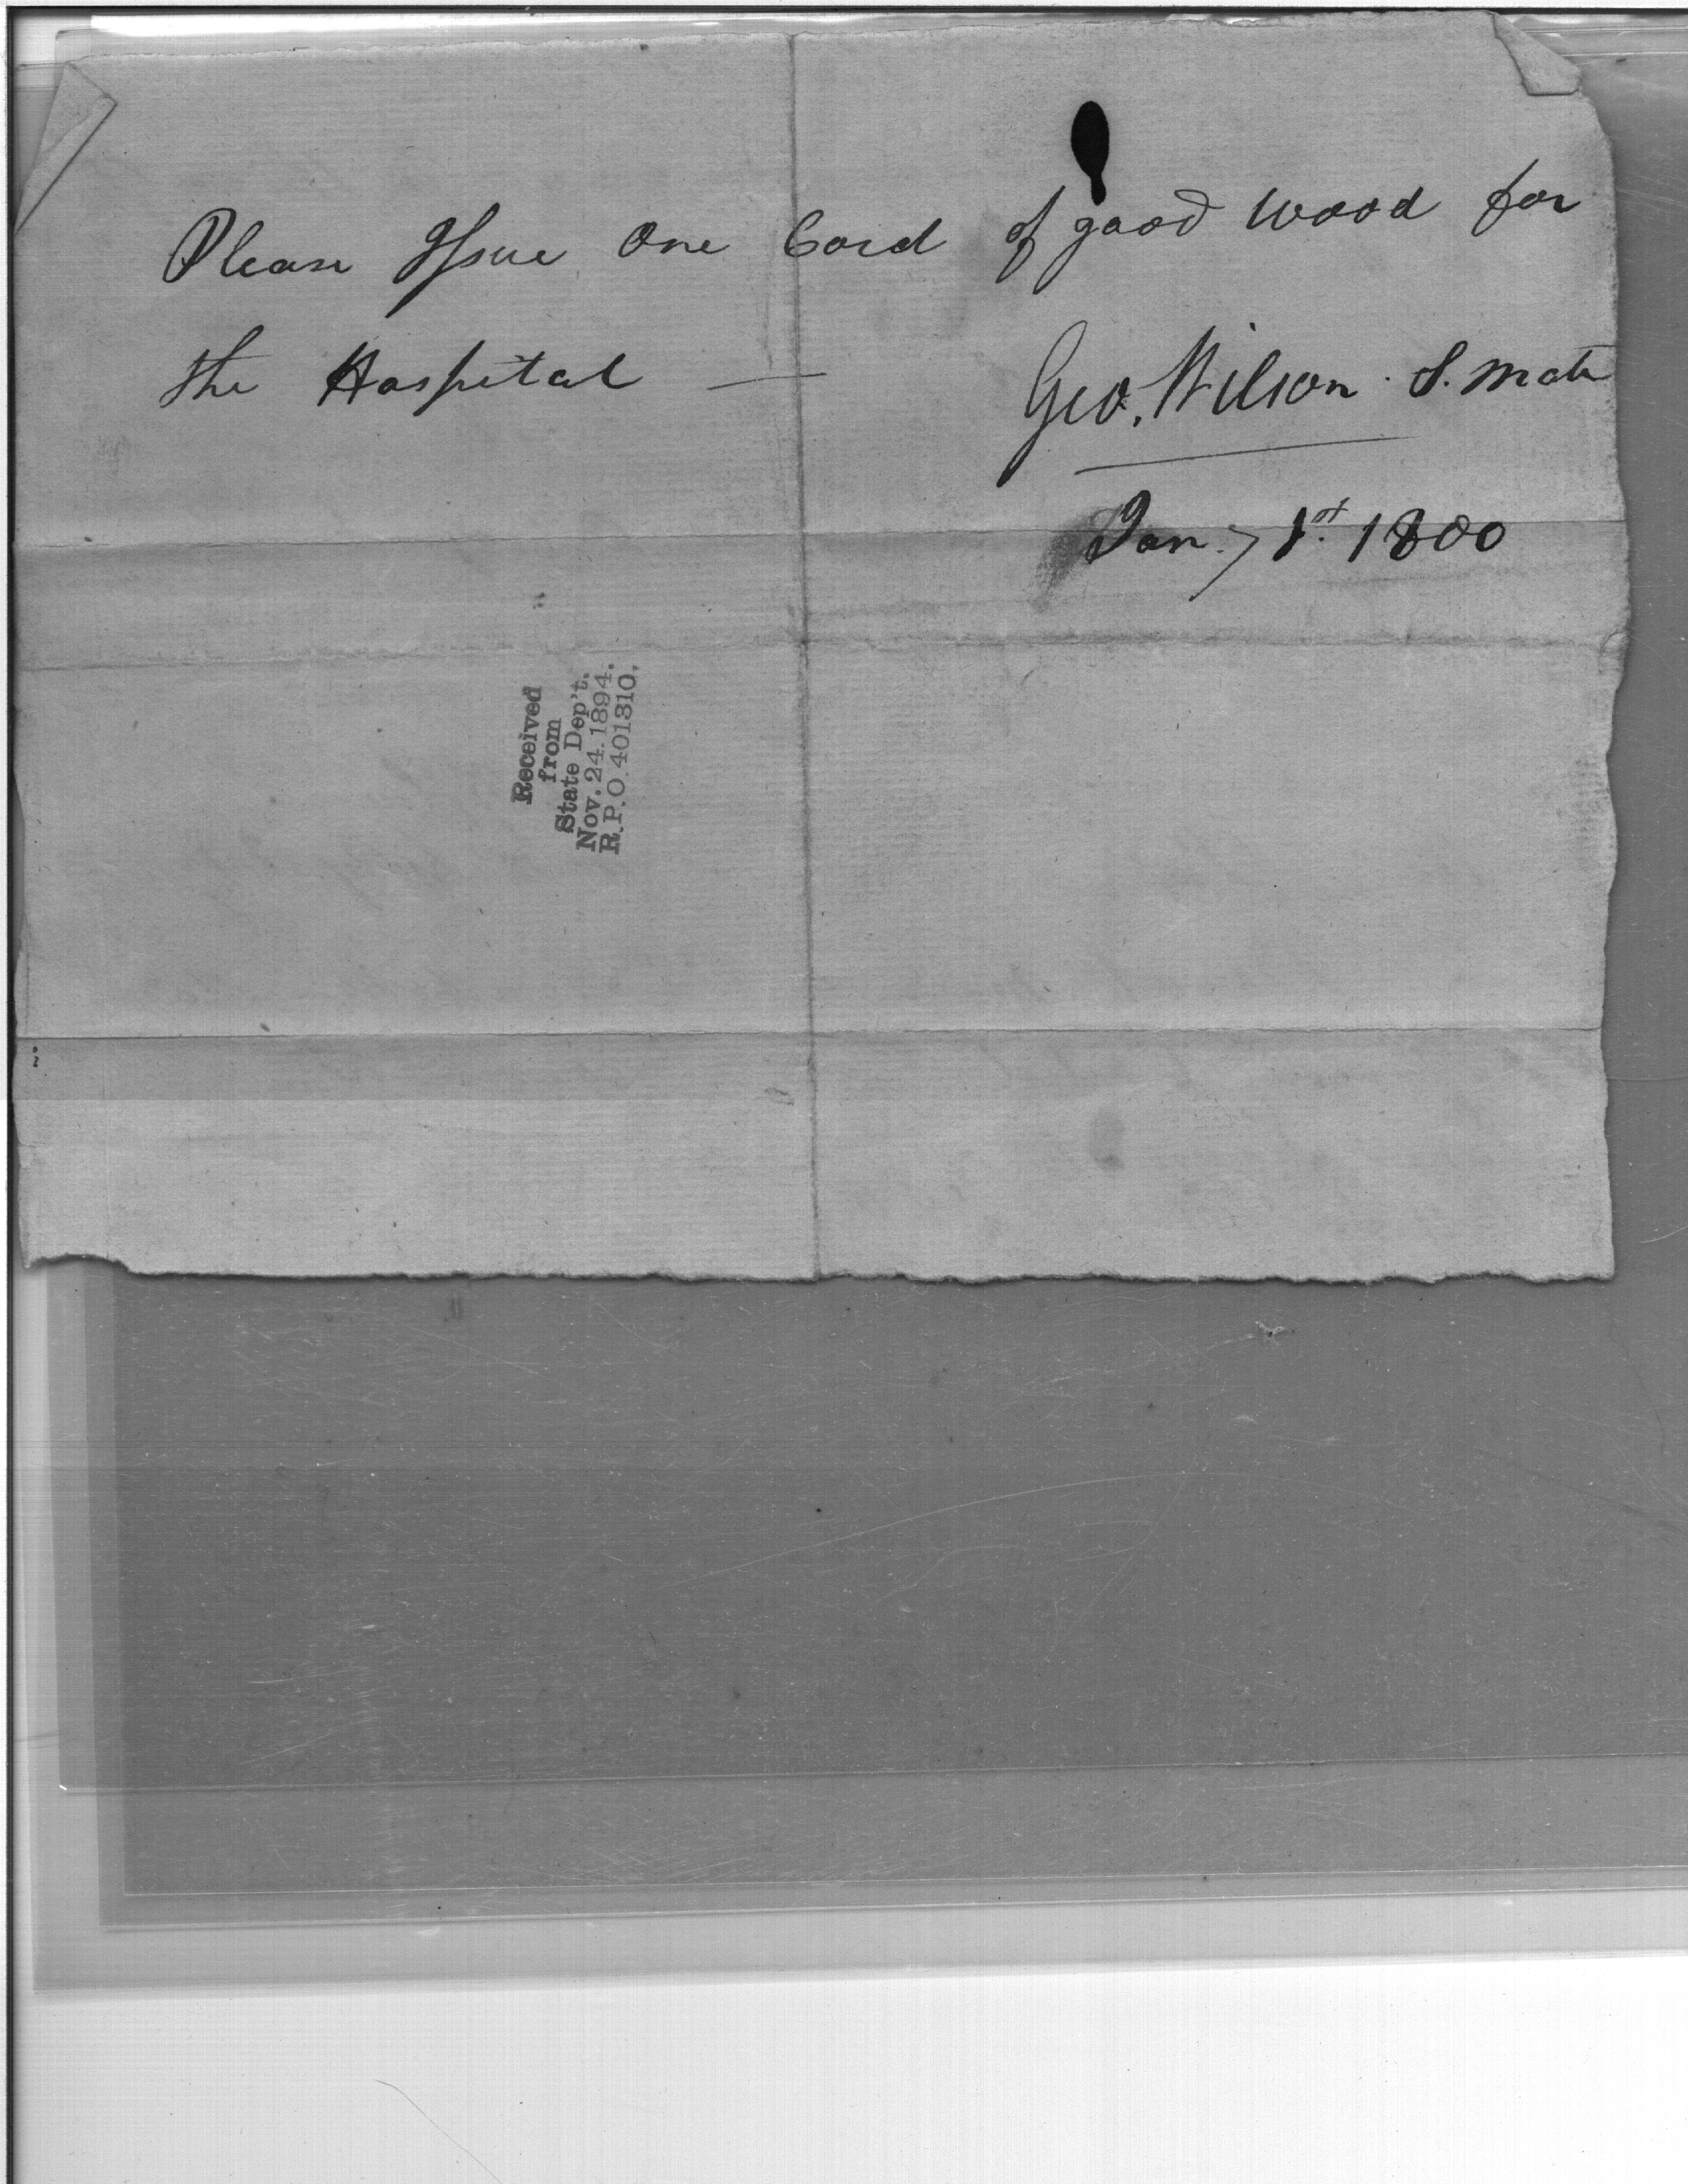 Please Issue One Cord of good wood for
the Hospital —
Geo. Wilson S. Mate
Jany 1st. 1800
Received
from
State Dep't.
Nov. 24. 1894.
R.P.O. 401310.